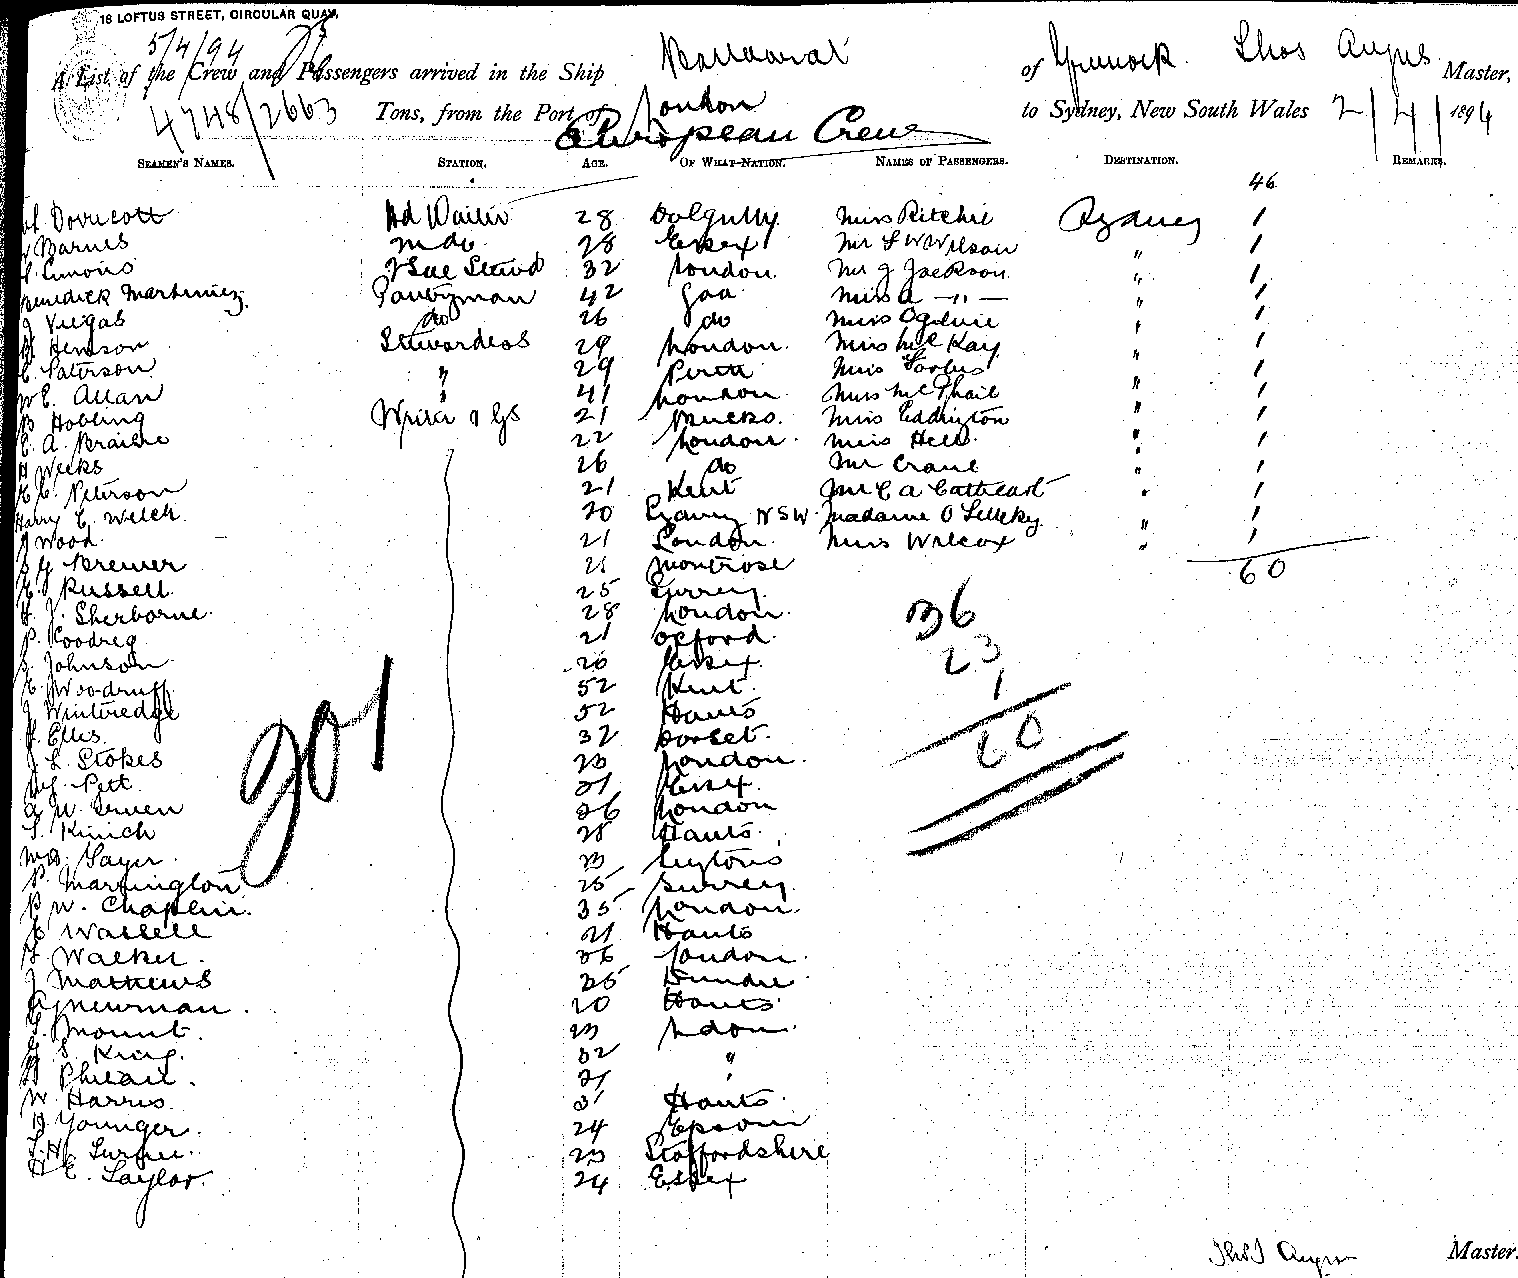 18 LOFTUS STREET, CIRCULAR QUAY.
5/4/94
A List of the Crew and Passengers arrived in the Ship Ballaarat of Greenock Thos Angus Master,
4748/2663 Tons, from the Port of London to Sydney, New South Wales 2/4/1894
European Crew
SEAMEN'S NAMES. STATION. AGE. OF WHAT NATION. NAMES OF PASSENGERS. DESTINATION. REMARKS.
46
Dovicott Hd Waiter 28 Dolgelly Miss Ritchie Sydney 1
Barnes 28 Essex Mr S W Wilson " 1
Simons 32 London Mr J Jackson " 1
Benedick Martiniez Pantryman 42 Goa Miss A — " — " 1
J Viegas do 26 do Miss Ogilvie " 1
Henson Stewardess 29 London Miss McKay " 1
C. Paterson " 29 Perth Miss Forbes " 1
E. Allan " 41 London Miss McPhail " 1
Hobling 21 Bucks. Miss Eddington " 1
E. A. Brailie 22 London Miss Hell " 1
Weeks 26 do Mr Crane " 1
Peterson 21 Kent Mr C A Cathcart " 1
Harry C. Welch 20 Sydney NSW Madame O " 1
J Wood 21 London Miss Wilcox " 1
Brewer 21 Montrose 60
Russell 25 Surrey
H. J. Sherborne 28 London 36
P. Goodreg 21 Oxford
S. Johnson 26 Essex 23
E. Woodruff 52 Kent 1
J Winteredge 52 Hants
Ellis 32 Dorset 60
J. L. Stokes 26 London
201
Pett 21 Essex
W. 26 London
Kinich 28 Hants
Sayer 23
P. Marrington 25 Surrey
W. Chaplin 35 London
Wassell 21 Hants
Walker 36 London
J Mathews 25 Dundee
Newman 20 Hants
Mount 23 Ldon
S. King 32 "
Phieall 21 "
W. Harris 31 Hants
Younger 24 Epsom
T. H. Turner 23 Staffordshire
H E. Taylor 24 Essex
Thos Angus Master.